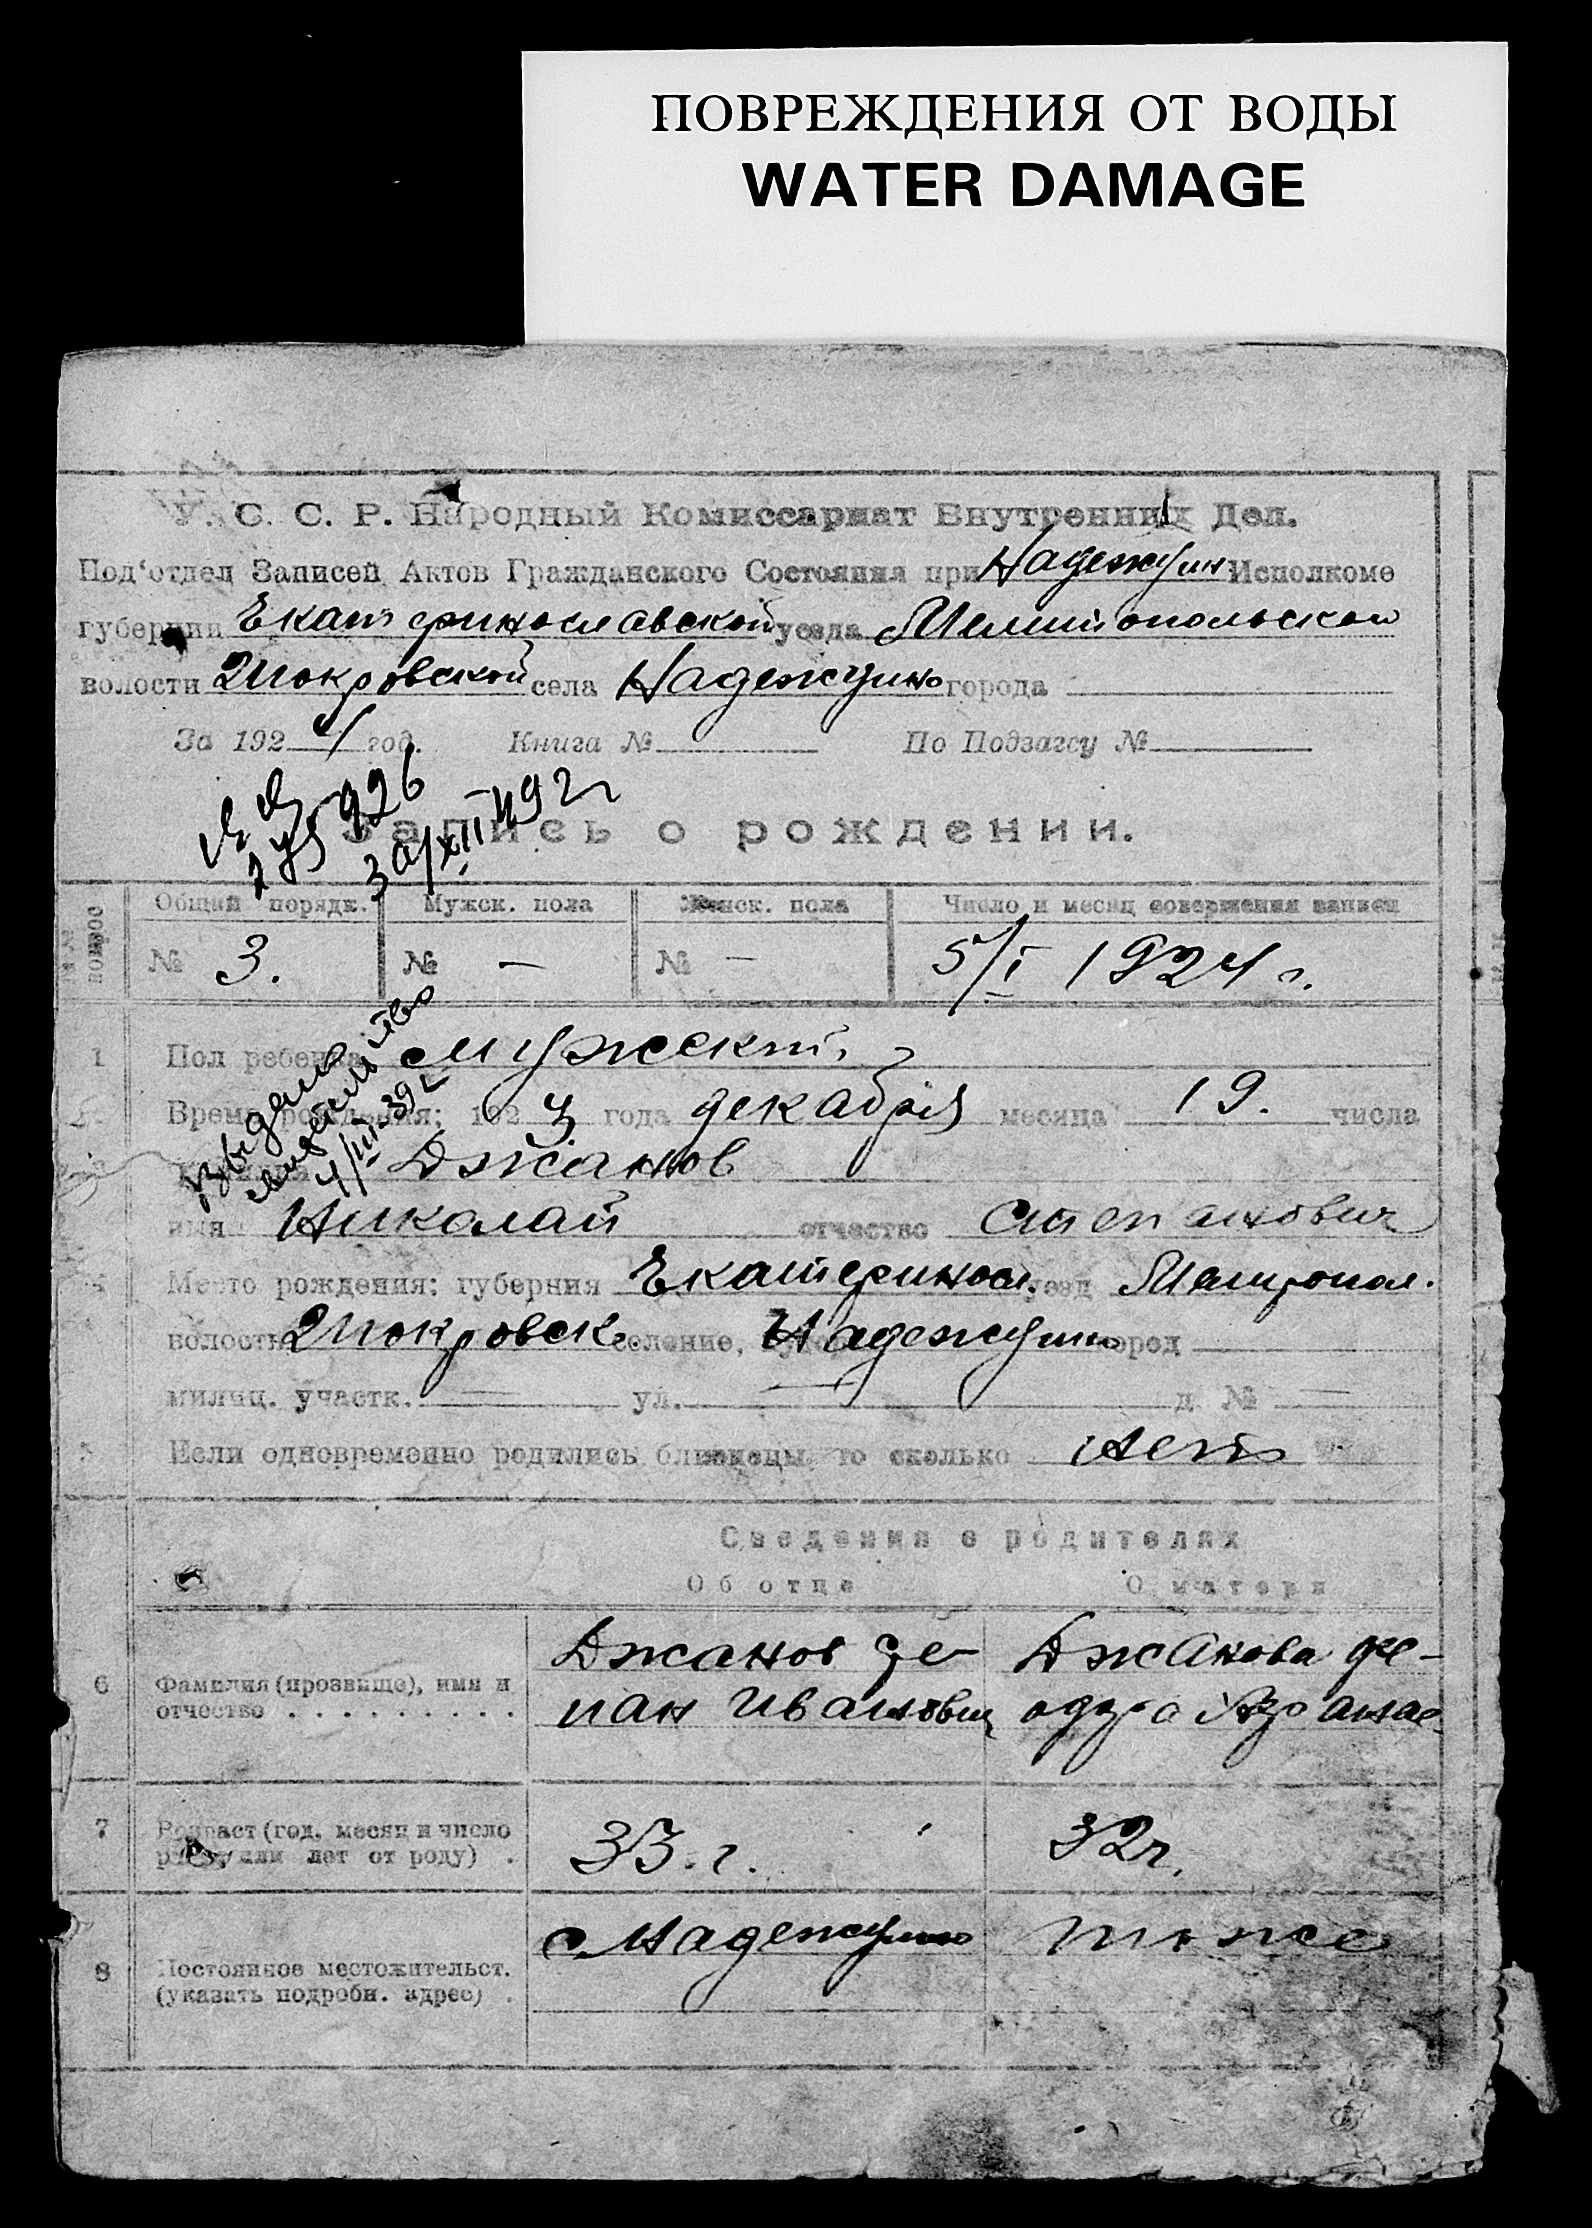 ПОВРЕЖДЕНИЯ ОТ ВОДЫ
WATER DAMAGE
У. С. С. Р. Народный Комиссариат Внутренних Дел.
Под'отдел Записей Актов Гражданского Состояния при Надеждин Исполкоме
губернии Екатеринославской уезда Мелитопольского
волости Покровской села Надеждино города
За 1924 год. Книга № По Подзагсу №
275926
30/XII 492г
Запись о рождении.
Общий порядк. Мужск. пола Женск. пола Число и месяц совершения записи
№ 3. № — № — 5/I 1924 г.
1 Пол ребенка мужской
Выдано свидетельство 4/III-39г
2 Время рождения: 1923 года декабря месяца 19. числа
Джанов
имя Николай отчество Степанович
4 Место рождения: губерния Екатеринос. уезд Мелитопол.
волость Покровск. селение, Надеждино город
милиц. участк. — ул. — д. № —
5 Если одновременно родились близнецы то сколько нет
Сведения о родителях
Об отце О матери
6 Фамилия (прозвище), имя и отчество . . . . . . . . . Джанов Сте-пан Иванович Джанова Фе-одора Афанас.
7 Возраст (год, месяц и число рожд. или лет от роду) . 33. г. 32 г.
8 Постоянное местожительст. (указать подробн. адрес) . с. Надеждино тоже